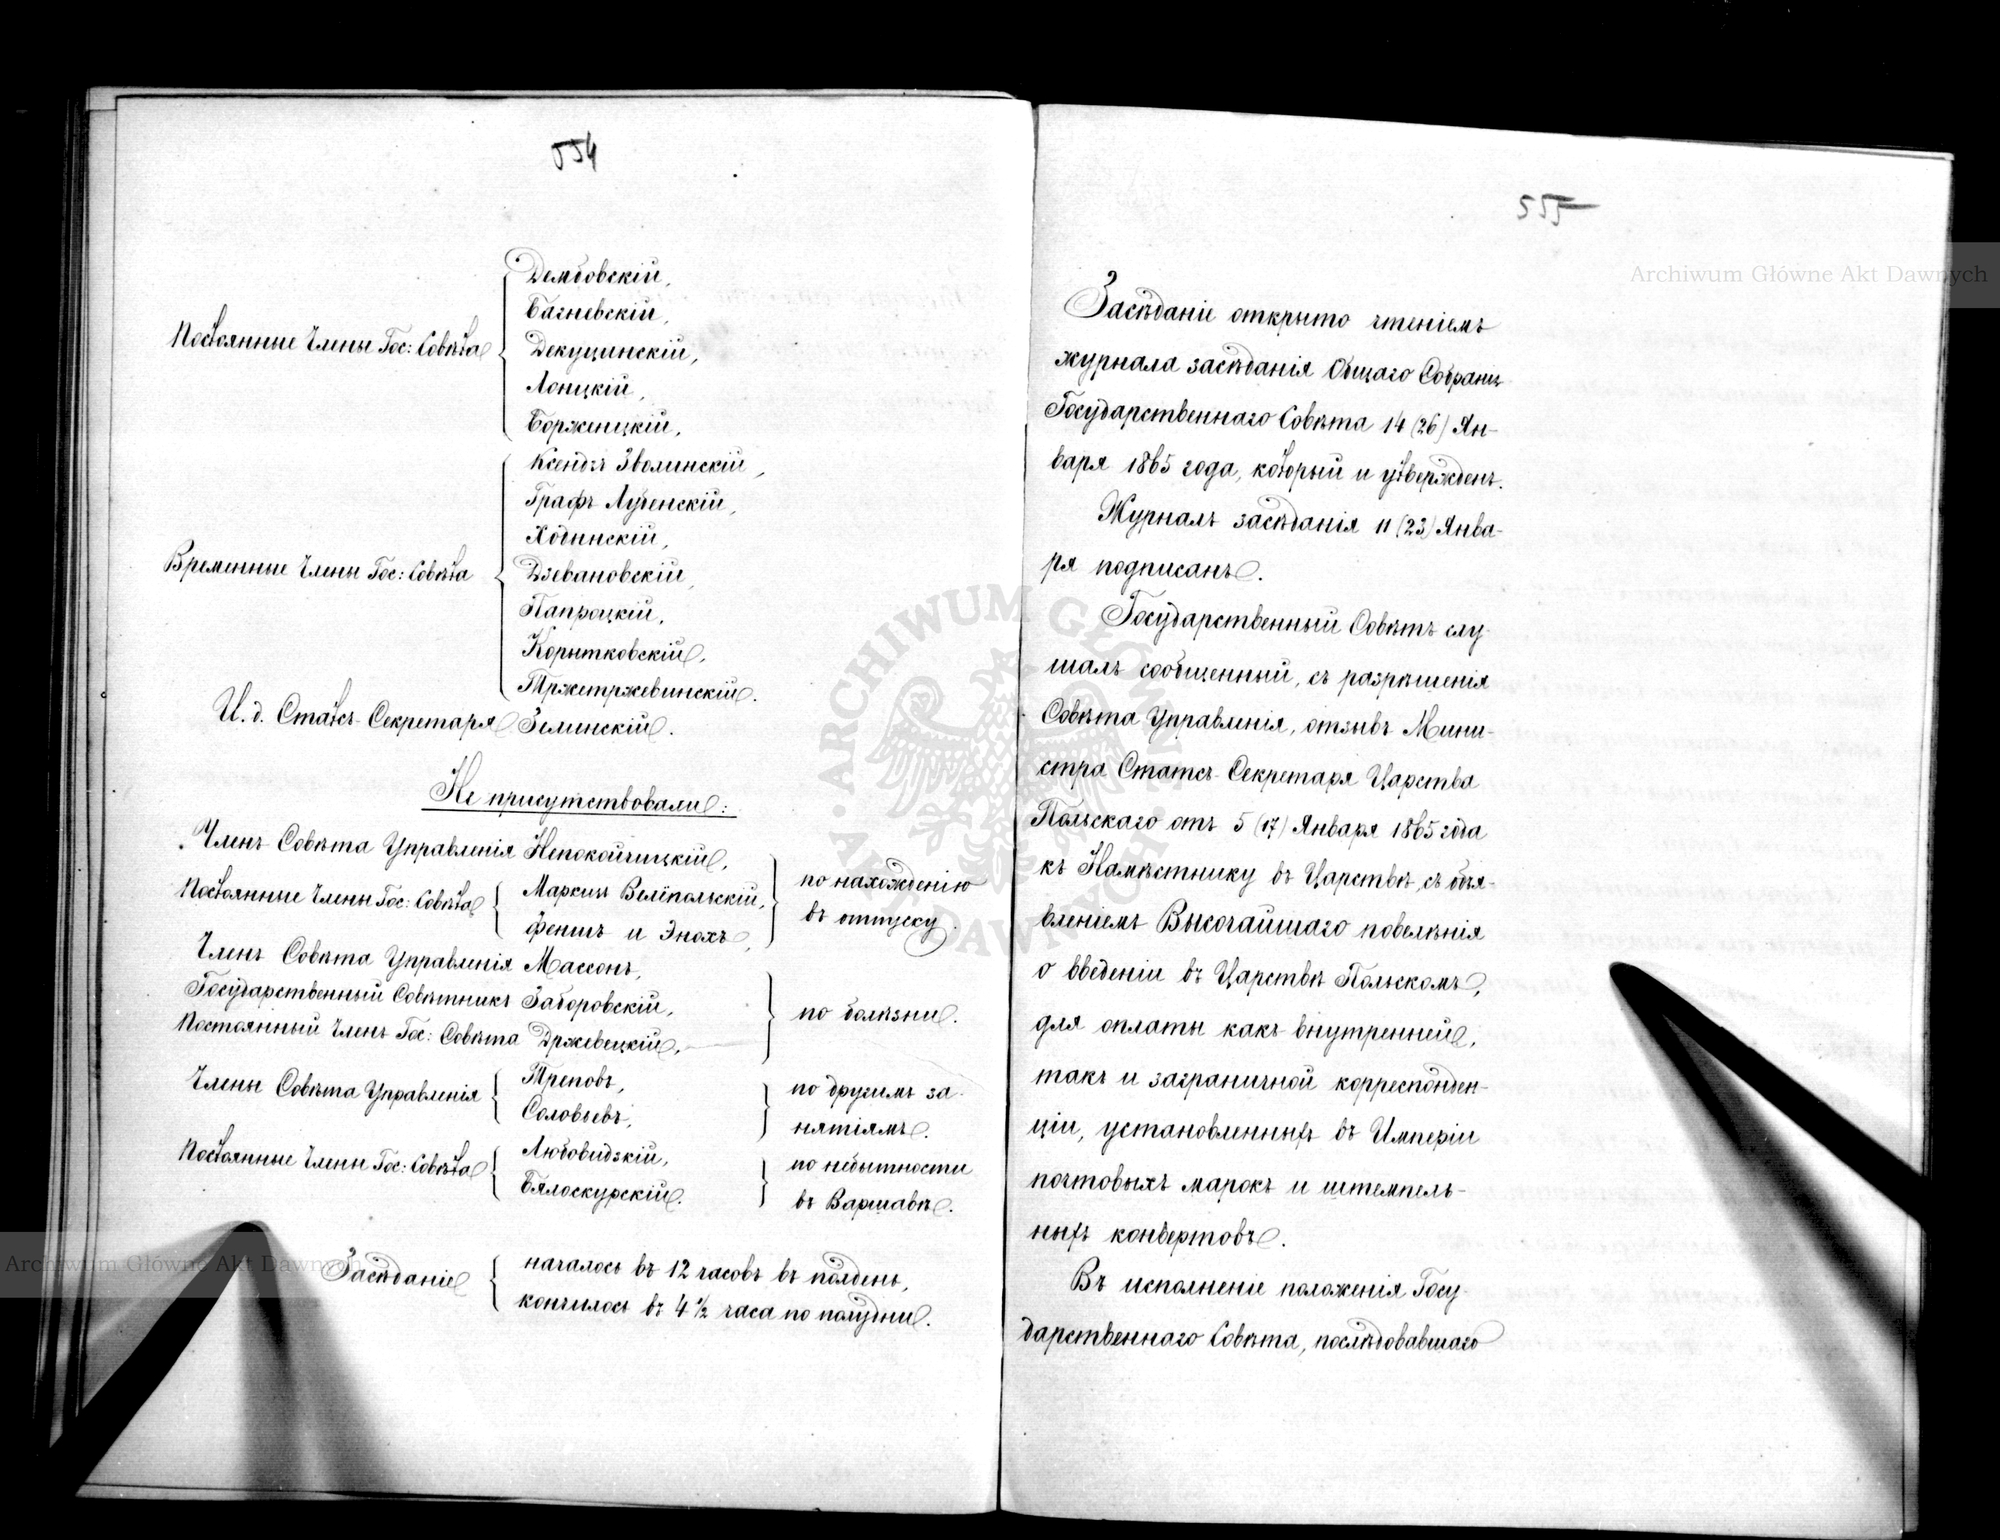 554
Постоянные Члены Гос: Совѣта
Дембовскій,
Багневскій,
Декуцинскій,
Лонцкій,
Борженцкій,
Временные Члены Гос: Совѣта
Ксендзъ Зволинскій,
Графъ Лубенскій,
Ходынскій,
Дзевановскій,
Папроцкій,
Корытковскій,
Тржетржевинскій.
И. д. Статсъ-Секретаря Зелинскій.
Не присутствовали:
Членъ Совѣта Управленія Непокойчицкій,
Постоянные Члены Гос: Совѣта
Маркизъ Велёпольскій,
Феншъ и Энохъ,
по нахожденію
въ отпуску.
Членъ Совѣта Управленія Массонъ,
Государственный Совѣтникъ Заборовскій,
Постоянный Членъ Гос: Совѣта Држевецкій,
по болѣзни.
Члены Совѣта Управленія
Треповъ,
Соловьевъ,
по другимъ за-
нятіямъ.
Постоянные Члены Гос: Совѣта
Любовидзкій,
Бялоскурскій.
по небытности
въ Варшавѣ.
Засѣданіе
началось въ 12 часовъ въ полдень,
кончилось въ 4 ½ часа по полудни.
555
Засѣданіе открыто чтеніемъ
журнала засѣданія Общаго Собранія
Государственнаго Совѣта 14 (26) Ян-
варя 1865 года, который и утвержденъ.
Журналъ засѣданія 11 (23) Янва-
ря подписанъ.
Государственный Совѣтъ слу-
шалъ сообщенный, съ разрѣшенія
Совѣта Управленія, отзывъ Мини-
стра Статсъ-Секретаря Царства
Польскаго отъ 5 (17) Января 1865 года
къ Намѣстнику въ Царствѣ, съ объя-
вленіемъ Высочайшаго повелѣнія
о введеніи въ Царствѣ Польскомъ,
для оплаты какъ внутренней,
такъ и заграничной корреспонден-
ціи, установленныхъ въ Имперіи
почтовыхъ марокъ и штемпель-
ныхъ конвертовъ.
Въ исполненіе положенія Госу-
дарственнаго Совѣта, послѣдовавшаго
Archiwum Główne Akt Dawnych
Archiwum Główne Akt Dawnych
ARCHIWUM GŁÓWNE AKT DAWNYCH